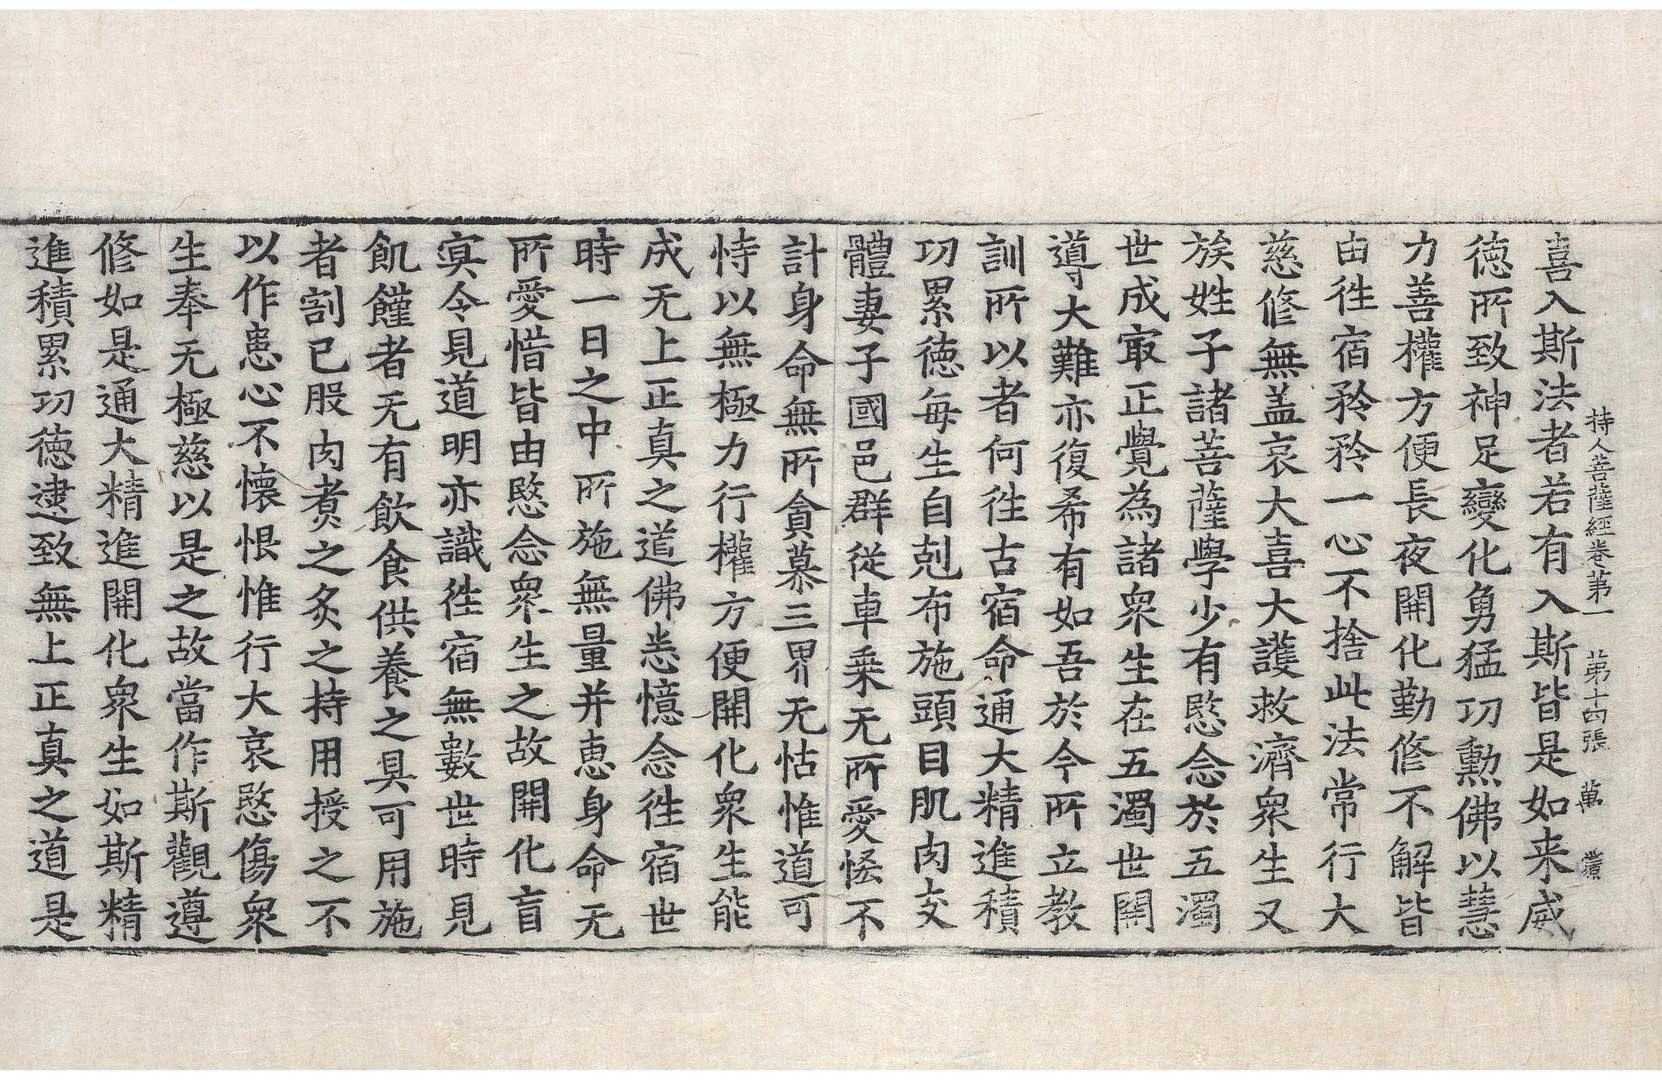 持人菩薩經卷苐一　苐十四張　萬
喜入斯法者若有入斯皆是如来威
徳所致神足變化勇猛功勲佛以慧
力善權方便長夜開化勤修不解皆
由徃宿矜矜一心不捨此法常行大
慈修無盖哀大喜大護救濟衆生又
族姓子諸菩薩學少有愍念於五濁
世成㝡正覺為諸衆生在五濁世開
導大難亦復希有如吾於今所立教
訓所以者何徃古宿命通大精進積
功累徳每生自剋布施頭目肌肉支
體妻子國邑群從車乗无所愛恡不
計身命無所貪慕三界无怙惟道可
恃以無極力行權方便開化衆生能
成无上正真之道佛恙憶念徃宿世
時一日之中所施無量并恵身命无
所愛惜皆由愍念衆生之故開化盲
冥令見道明亦識徃宿無數世時見
飢饉者无有飲食供養之具可用施
者割已股肉煑之炙之持用授之不
以作恚心不懐恨惟行大哀愍傷衆
生奉无極慈以是之故當作斯觀遵
修如是通大精進開化衆生如斯精
進積累功徳逮致無上正真之道是